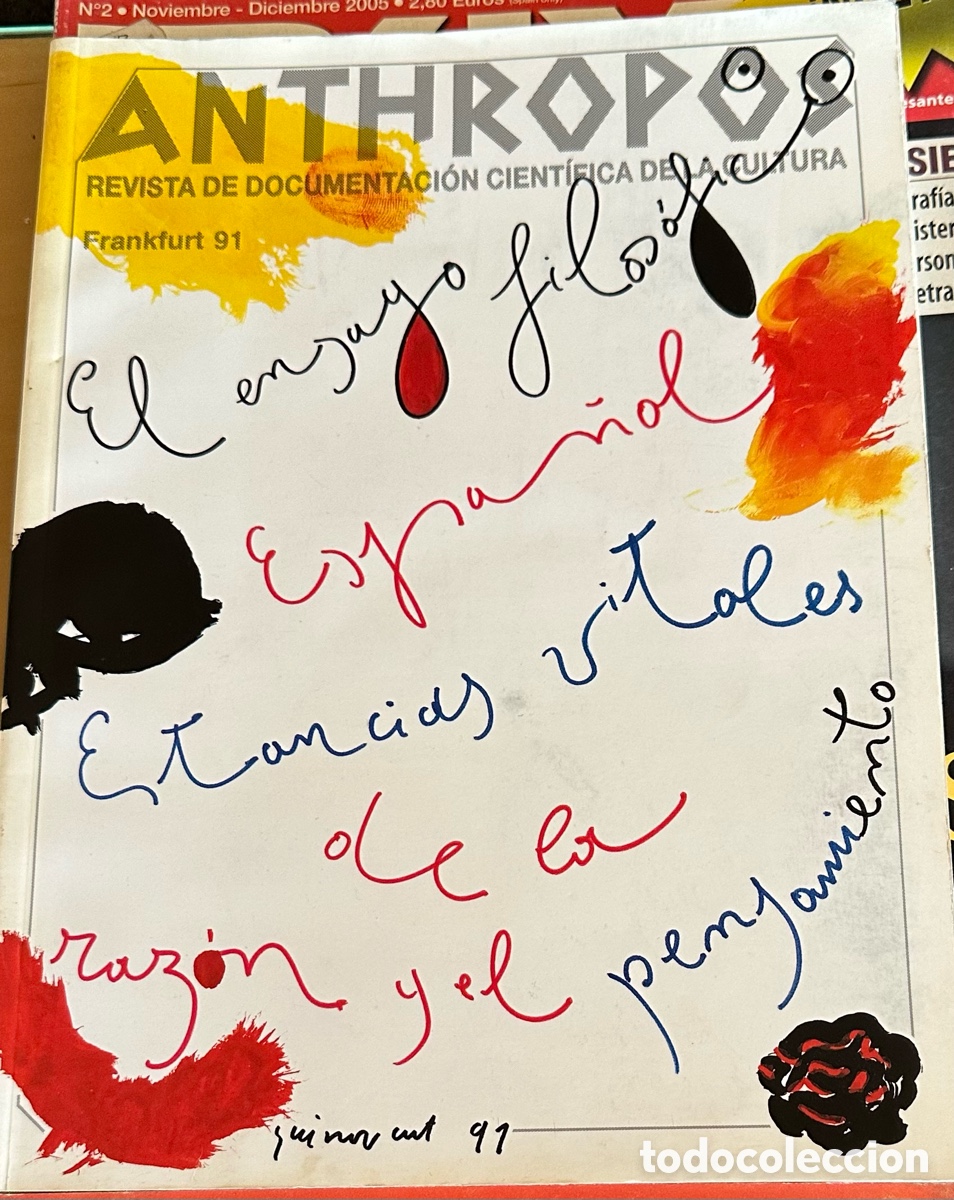 Nº2 • Noviembre - Diciembre 2005 • 2,80 Euros (Spain only)
ANTHROPOS
REVISTA DE DOCUMENTACIÓN CIENTÍFICA DE LA CULTURA
Frankfurt 91
El ensayo filosófico
Español
Estancias vitales
de la
razón y el pensamiento
91
esante
SIE
rafía
ister
rson
etra
todocoleccion